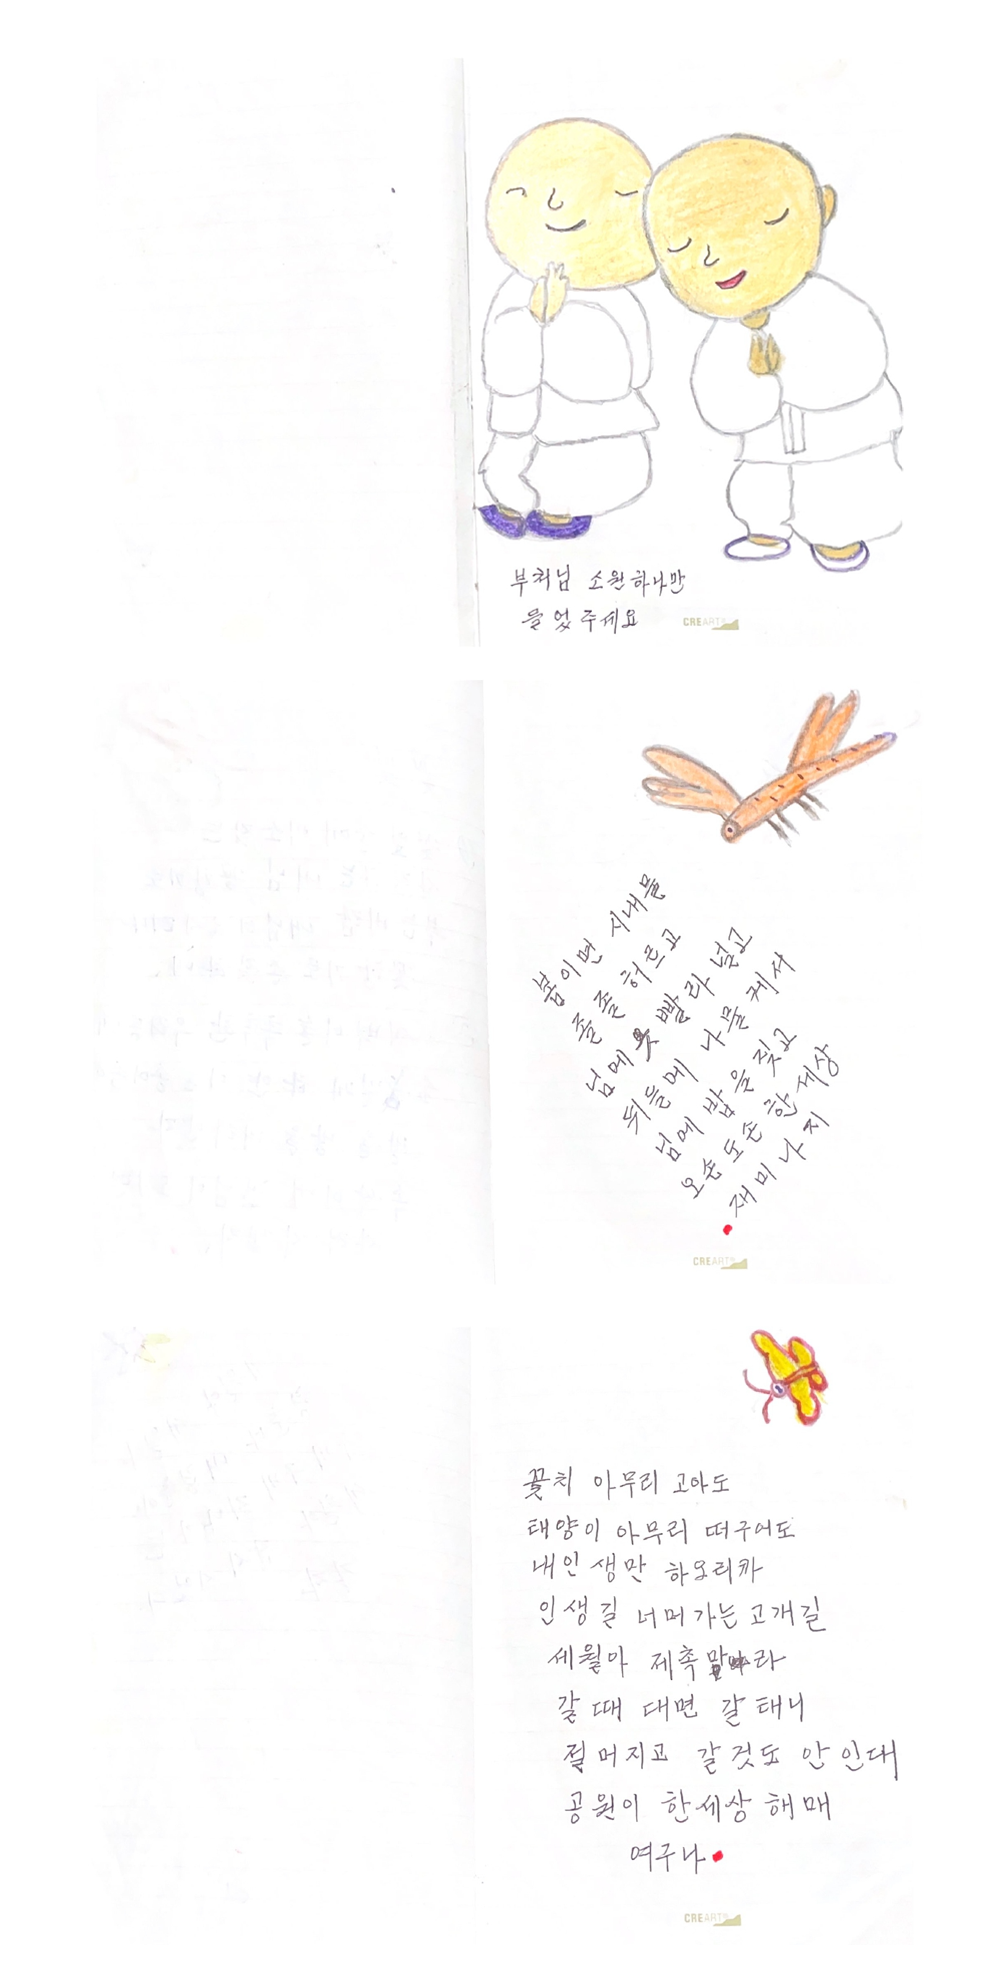 부처님 소원하나만
들었주세요
CREART
봄이면 시내물
졸졸 허르고
님메옷 빨라널고
뒤들메 나물케서
님메 밥을 짖고
오손도손 한세상
재미나지
CREART
꽃치 아무리 고아도
태양이 아무리 떠구어도
내인생만 하오리까
인생길 너머가는 고개길
세월아 제촉말아라
갈때 대면 갈태니
절머지고 갈것도 안인대
공원이 한세상 해매
여구나
CREART